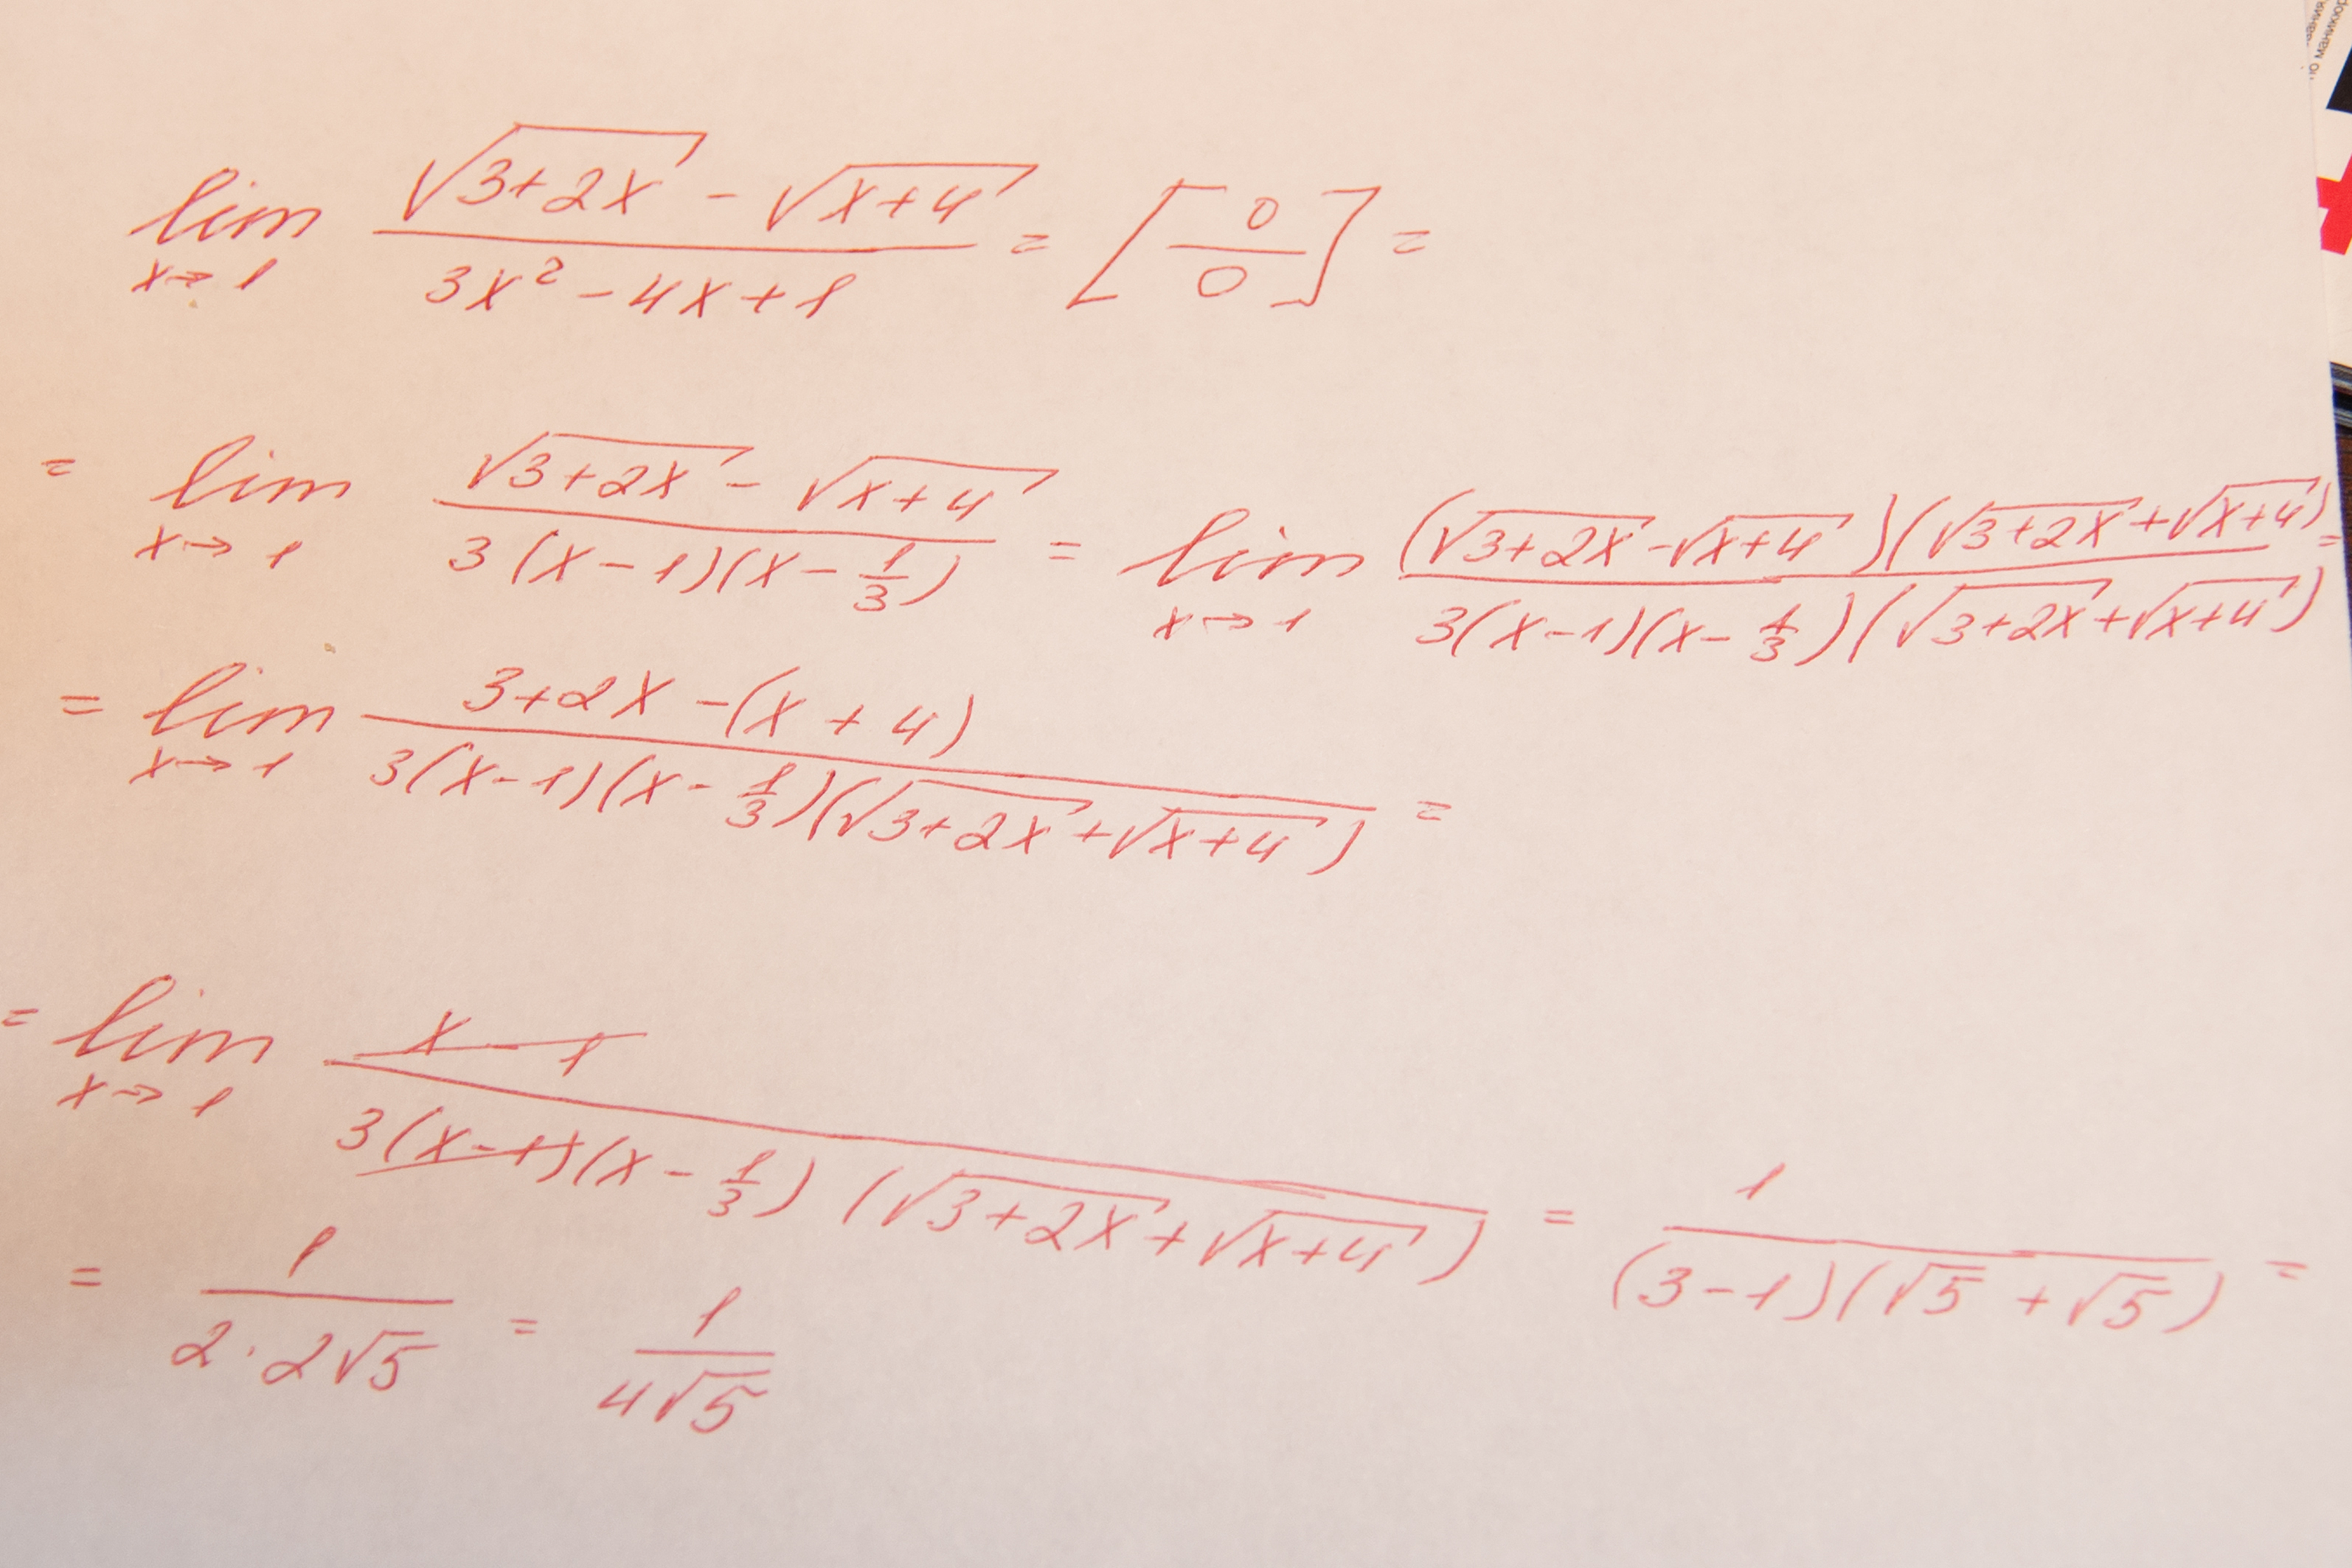 lim x→1 (√(3+2x) - √(x+4)) / (3x² - 4x + 1) = [0/0] =
= lim x→1 (√(3+2x) - √(x+4)) / (3(x-1)(x-1/3)) = lim x→1 ((√(3+2x) - √(x+4))(√(3+2x) + √(x+4))) / (3(x-1)(x-1/3)(√(3+2x) + √(x+4))) =
= lim x→1 (3+2x-(x+4)) / (3(x-1)(x-1/3)(√(3+2x) + √(x+4))) =
= lim x→1 (x-1) / (3(x-1)(x-1/3)(√(3+2x) + √(x+4))) = 1 / ((3-1)(√5 + √5)) =
= 1 / (2·2√5) = 1 / (4√5)
по маникюр